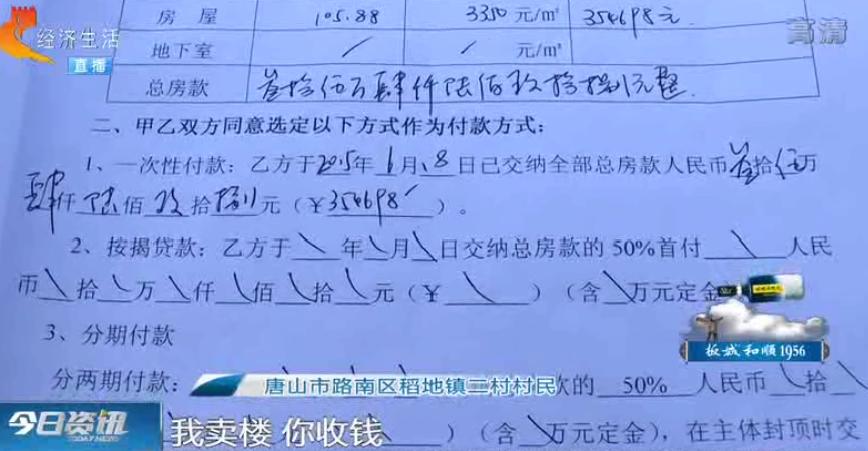 房 屋 105.88 3350 元/m² 354698元
经济生活
直播
高清
地下室 / / 元/m²
总房款 叁拾伍万肆仟陆佰玖拾捌元整
二、甲乙双方同意选定以下方式作为付款方式：
1、一次性付款：乙方于2015年6月18日已交纳全部总房款人民币叁拾伍万
肆仟陆佰玖拾捌元（￥354698）。
2、按揭贷款：乙方于\年\月\日交纳总房款的50%首付\人民
币\拾\万\仟\佰\拾\元（￥\）（含\万元定金
板城和顺1956
3、分期付款
分两期付款：
唐山市路南区稻地镇二村村民
款的 50% 人民币\拾\
今日资讯
TODAY NEWS
我卖楼 你收钱
）（含\万元定金），在主体封顶时交